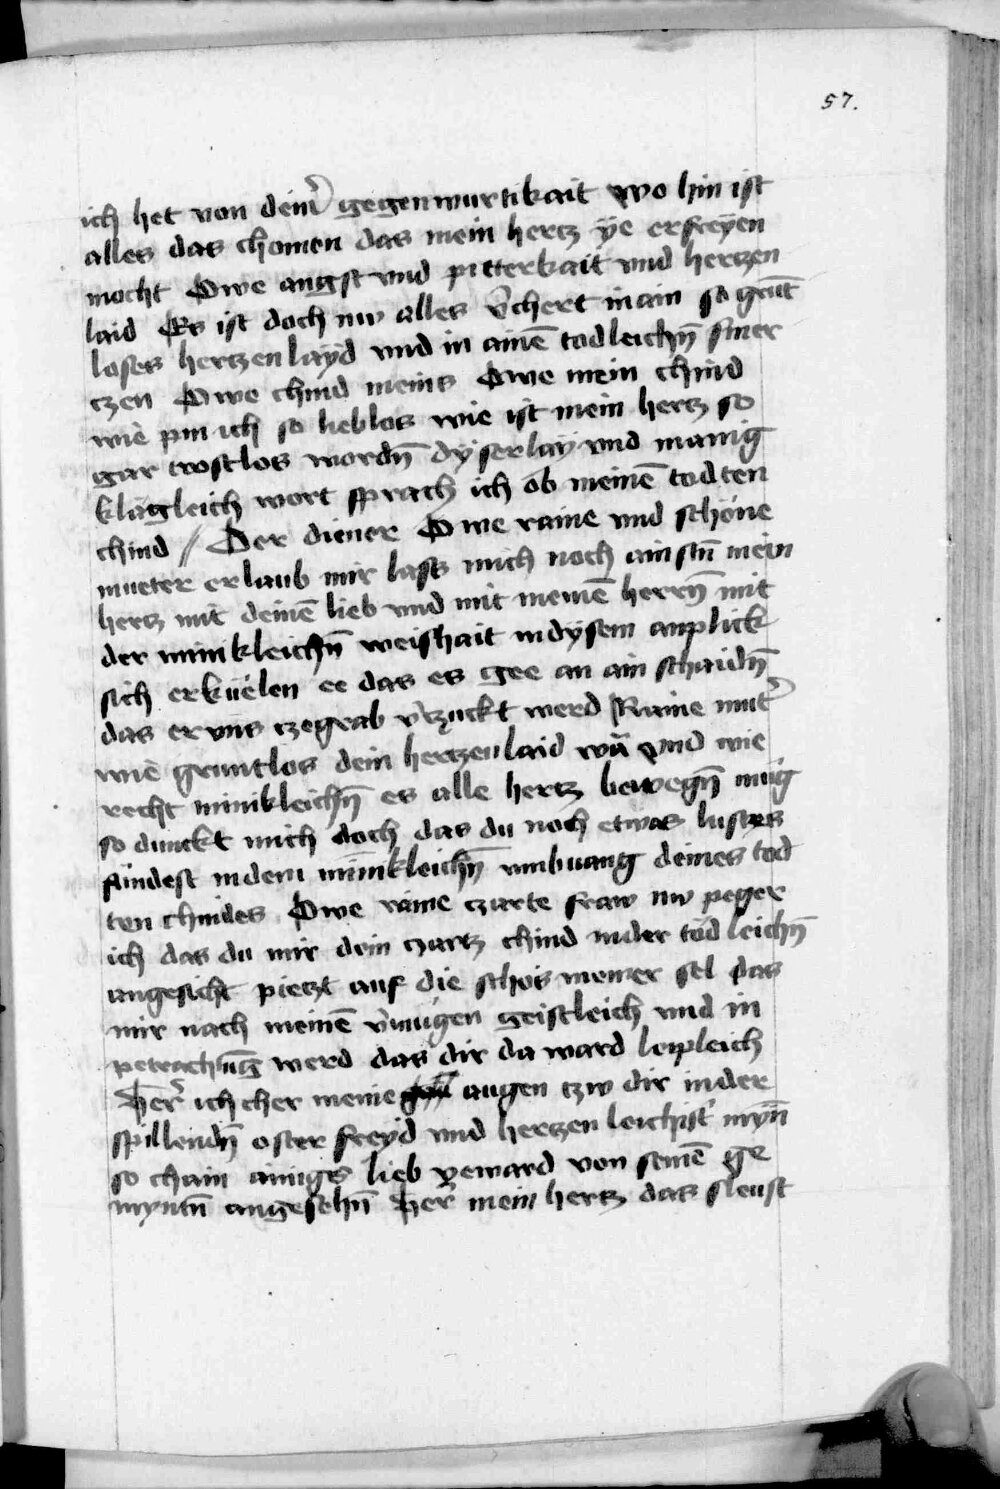 57.
ich het von deinr̄ gegenwurtikait wo hin ist
alles das chomen das mein hertz ÿe erfreẏen
mocht Owe angst vnd pitterkait vnd hertzen
laid Es ist doch nw alles v̄chert in ain so grūt
loses hertzen layd vnd in ainē todleichn̄ smer
czen Owe chind meins Owe mein chind
wie pin ich so lieblos wie ist mein hertz so
gar trostlos wordn̄ dÿserlaÿ vnd manig
klägleich wort sprach ich ob meinē todten
chind // Der diener Owe raine vnd schöne
mueter erlaub mir lass mich noch ainstn̄ mein
hertz mit deinē lieb vnd mit meinē herrn̄ mit
der minikleichn̄ weishait in dÿsem anplick
sich erküelen ee das es gee an ain schaidn̄
das er vns czegrab v̄czuckt werd Raine mut̄
wie gruntlos dein hertzenlaid wā vnd wie
recht minikleichn̄ es alle hertz bewegn̄ mug
so dunckt mich doch das du noch etwas lustes
fündest in dem minikleichn̄ vmbuang deines tod
ten chindes Owe raine czarte fraw nw peger
ich das du mir dein czartz chind in der tödleichn̄
angesicht pietzt auf die schos meiner sel das
mir nach meinē v̄mügen geistleich vnd in
petrachūg werd das dir da ward leipleich
Her̄ ich cher meine augen czw dir in der
spillendn̄ oster freẏd vnd hertzen leichist̄ mÿn̄
so chain ainigs lieb ye ward von seinē ge
myntn̄ angesehn̄ Her̄ mein hertz das sleust